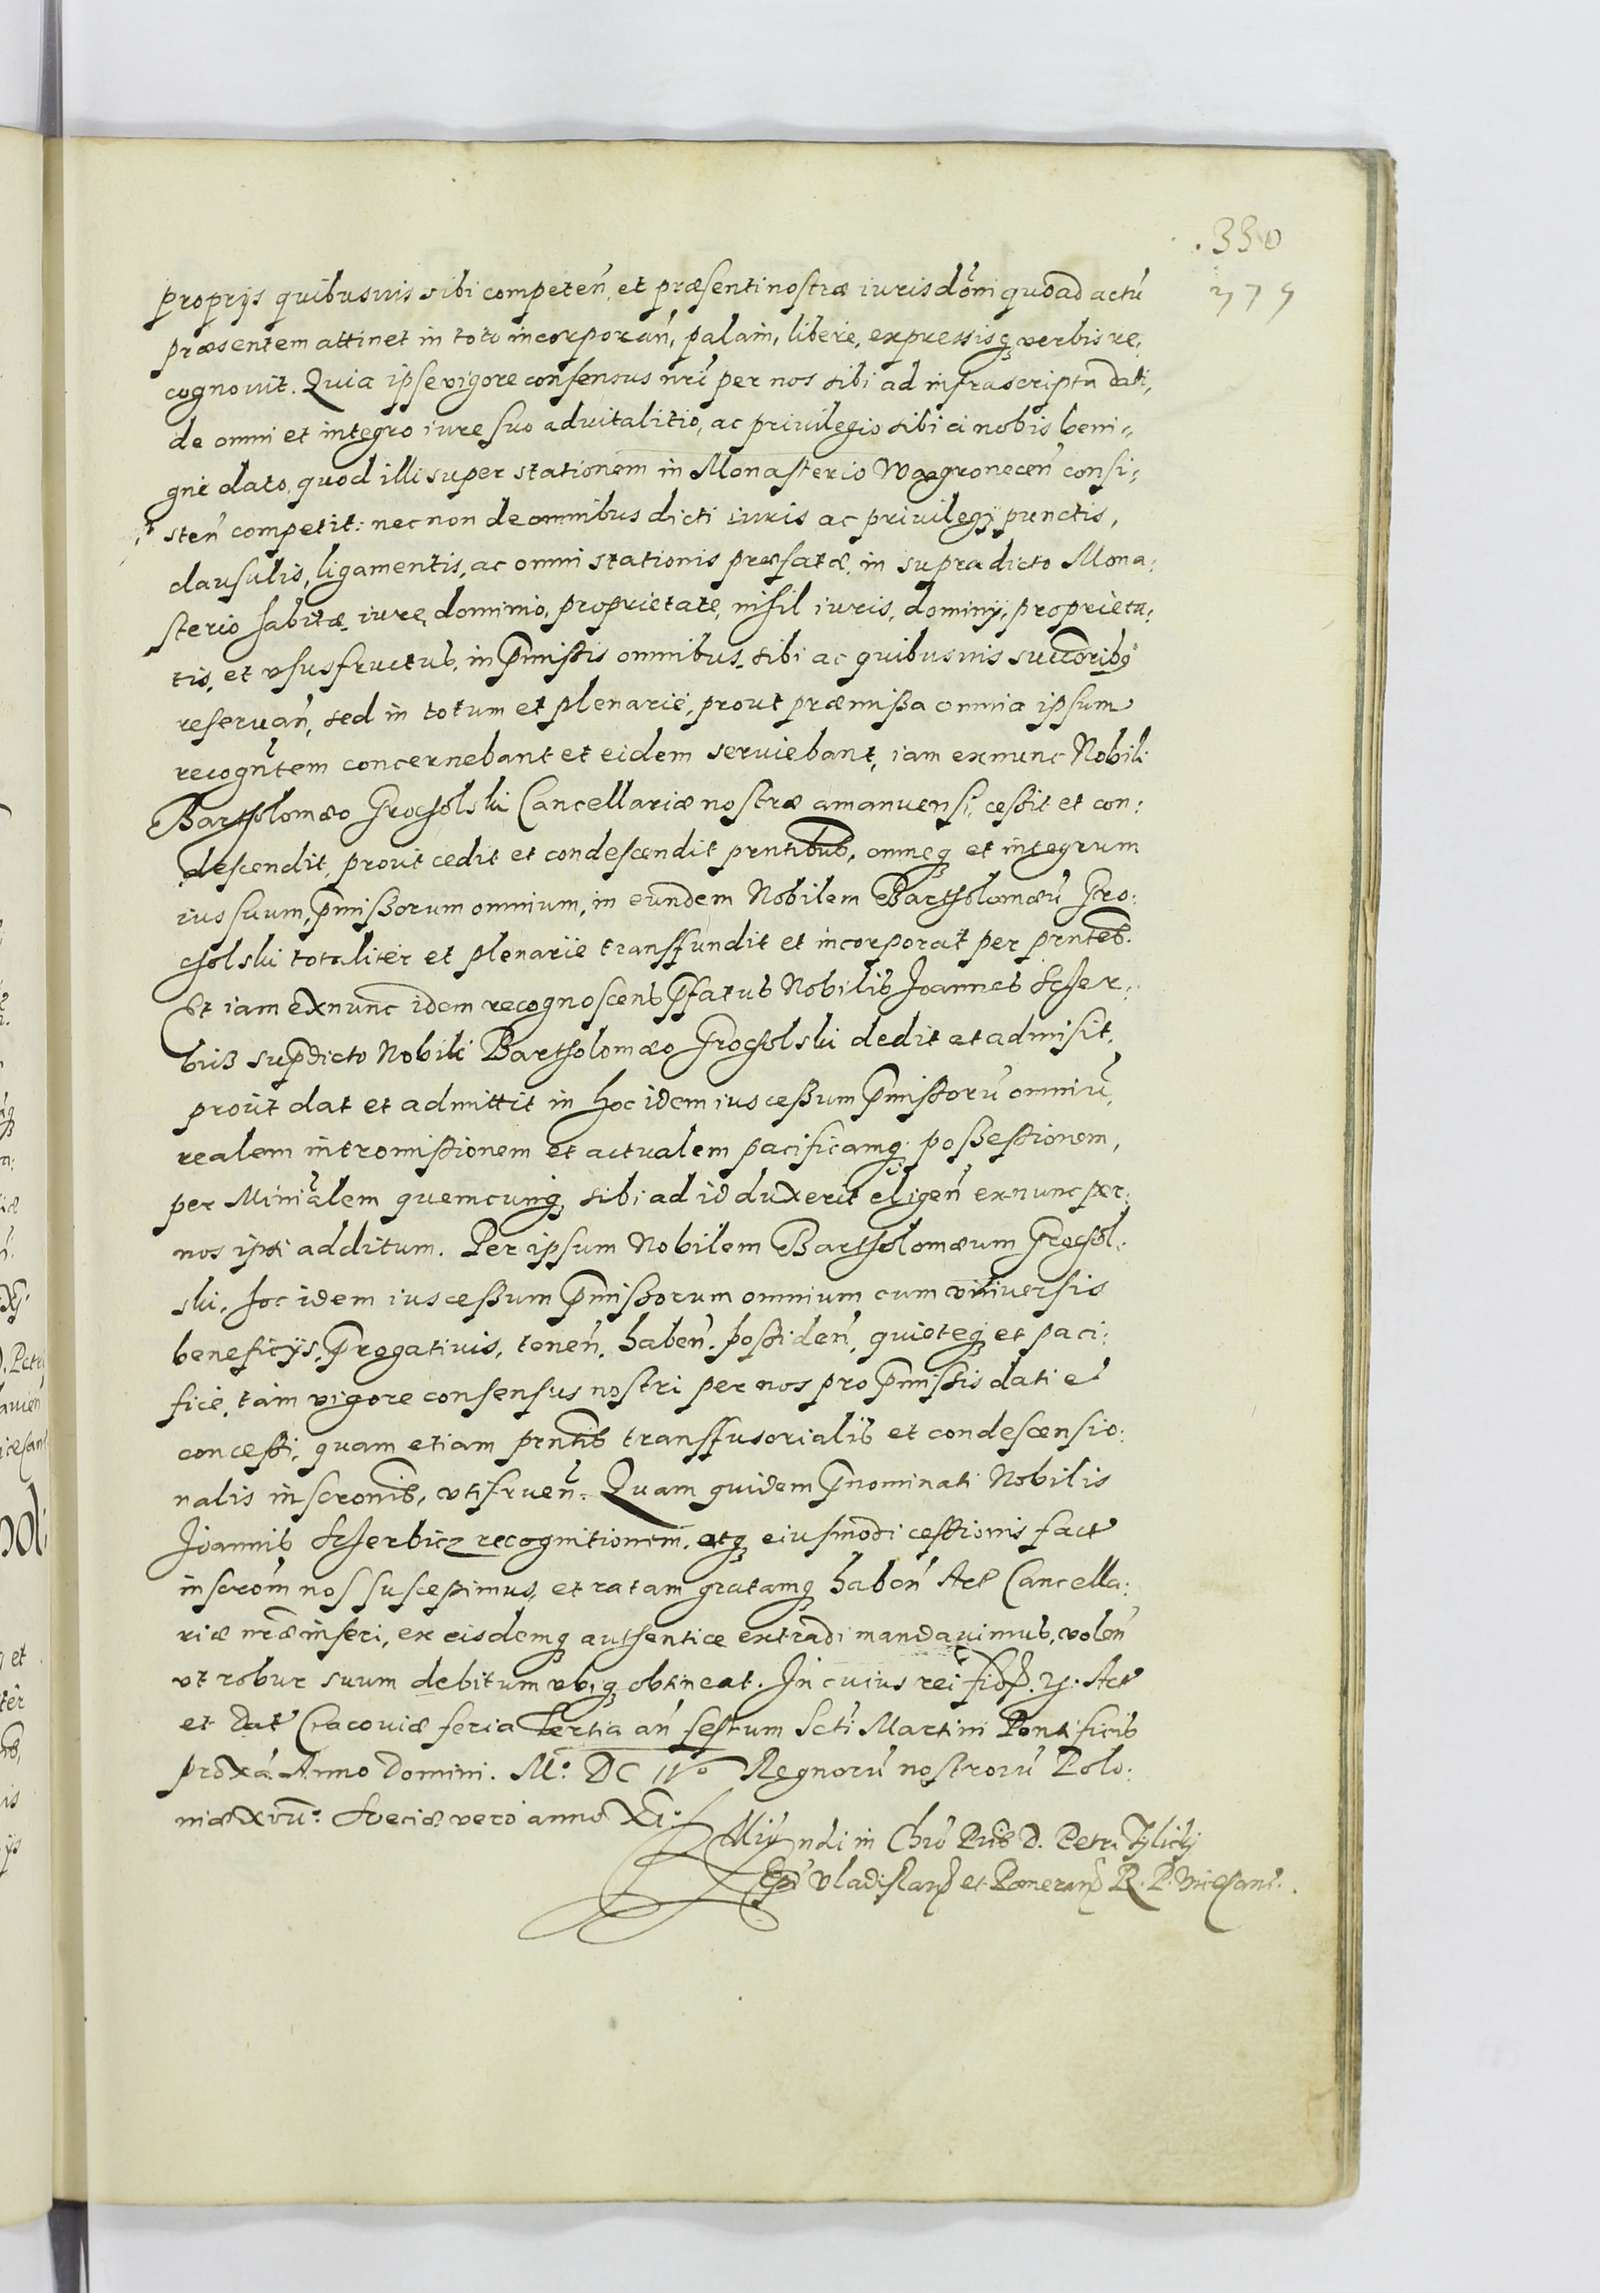 330
775
proprijs quibusuis sibi competeñ, et præsenti nostræ iurisdoñi quoad actū
præsentem attinet in toto incorporañ, palam, libere, expressisq; verbis re:
cognouit. Quia ipse vigore consensus nr̃i per nos sibi ad infrascripta dati,
de omni et integro iure suo aduitalitio, ac priuilegio sibi a nobis beni:
gne dato, quod illi super stationem in Monasterio Wagronecen̄ consi:
sten̄ competit: nec non de omnibus dicti iuris ac priuilegij punctis,
clausulis, ligamentis, ac omni stationis præfatæ, in supradicto Mona:
sterio habitæ iure, dominio, proprietate, nihil iuris, dominij, proprieta:
tis, et vsusfructus, in p̄missis omnibus, sibi ac quibusuis succorib9
reseruañ, sed in totum et plenarie, prout præmissa omnia ipsum
recogñtem concernebant et eidem seruiebant, iam exnunc Nobili
Bartholomæo Grocholski Cancellariæ nostræ amanuensi, cessit et con:
descendit, prout cedit et condescendit prñtibus, omneq; et integrum
ius suum, p̄missorum omnium, in eundem Nobilem Bartholomæū Gro:
cholski totaliter et plenarie transfundit et incorporat per prñtes.
Et iam exnunc idem recognoscens p̄fatus Nobilis Joannes Scher:
bicz sup̄dicto Nobili Bartholomæo Grocholski dedit et admisit,
prout dat et admittit in hoc idem ius cessum p̄missorū omniū,
realem intromissionem et actualem pacificamq; possessionem,
per Miniālem quemcunq; sibi ad id duxerit eligeñ exnunc per
nos ipsi additum. Per ipsum Nobilem Bartholomæum Grochol:
ski, hoc idem ius cessum p̄missorum omnium cum vniuersis
beneficijs, p̄rogatiuis, teneñ, habeñ, possideñ, quieteq; et paci:
fice, tam vigore consensus nostri per nos pro p̄missis dati et
concessi, quam etiam prñtis transfusorialis et condescensio:
nalis inscronis, vtifrueñ. Quam quidem p̄nominati Nobilis
Joannis Scherbicz recognitionem, atq; eiusmodi cessionis fact
inscrom̄ nos suscepimus, et ratam gratamq; habeñ Act Cancella:
riæ nr̃æ inseri, ex eisdemq; authentice extradi mandauimus, voleñ
vt robur suum debitum vbiq; obtineat. In cuius rei fid. y. Act
et Dat Cracouiæ feria Tertia añ festum Scti Martini Pontificis
proxa Anno Domini. Mº. DC IVº Regnorū nostrorū Polo:
niæ xvii°. Sueciæ vero anno XI°.
Illri ndi in Chro Pris D. Petri Tylicky
Epi Vladislauien et Pomeran R. P. Vicecanc.